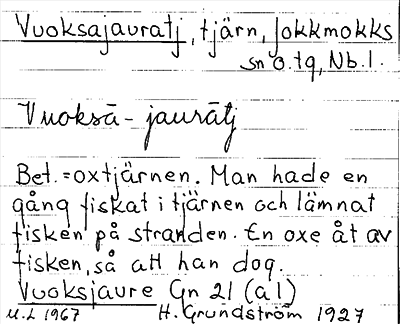 Vuoksajauratj, tjärn, Jokkmokks
sn o. tg, Nb.l.
Vuoksā-jaurātj
Bet. = oxtjärnen. Man hade en
gång fiskat i tjärnen och lämnat
fisken på stranden. En oxe åt av
fisken, så att han dog.
Vuoksjaure Gn 21 (a 1)
M.L 1967 H. Grundström 1927